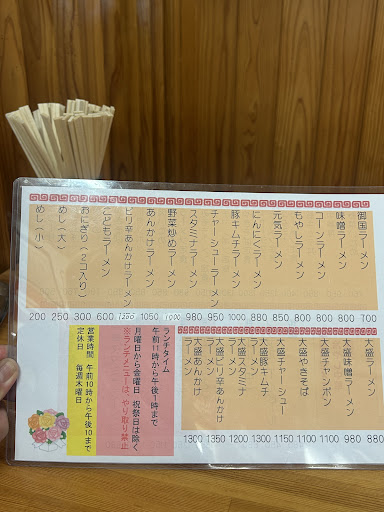 御国ラーメン 700
味噌ラーメン 800
コーンラーメン 800
もやしラーメン 800
元気ラーメン 850
にんにくラーメン 800
豚キムチラーメン 900
チャーシューラーメン 950
スタミナラーメン 980
野菜炒めラーメン 1000
あんかけラーメン 1050
ピリ辛あんかけラーメン
こどもラーメン 600
おにぎり(2コ入り) 300
めし(大) 250
めし(小) 200
大盛ラーメン 880
大盛味噌ラーメン 980
大盛チャンポン 1100
大盛やきそば 1100
大盛チャーシュー
ラーメン 1150
大盛豚キムチ
ラーメン 1100
大盛スタミナ
ラーメン 1200
大盛ピリ辛あんかけ
ラーメン 1350
大盛あんかけ
ラーメン 1300
ランチタイム
午前11時から午後1時まで
月曜日から金曜日 祝祭日は除く
※ランチメニューは、やり取り禁止
営業時間 午前10時から午後10まで
定休日 毎週木曜日